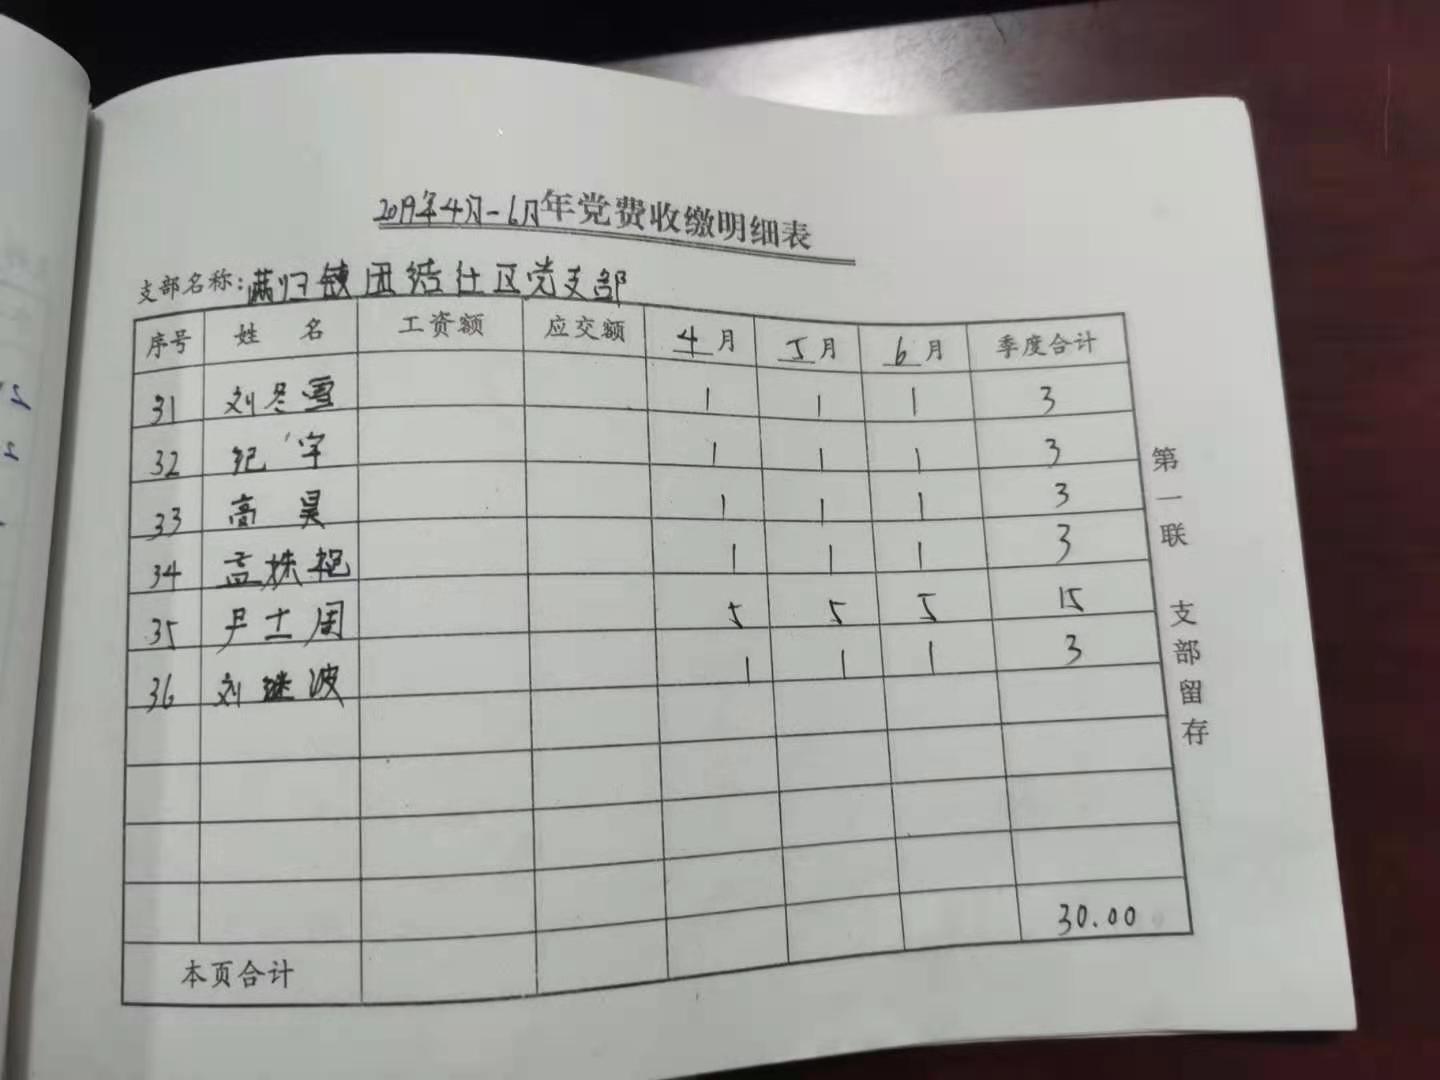 2019年4月-6月年党费收缴明细表
支部名称：满归镇团结社区党支部
序号 姓 名 工资额 应交额 4月 5月 6月 季度合计
31 刘冬雪 1 1 1 3
32 纪宇 1 1 1 3
33 高昊 1 1 1 3
34 孟姝艳 1 1 1 3
35 尹士周 5 5 5 15
36 刘继波 1 1 1 3
本页合计 30.00
第一联 支部留存